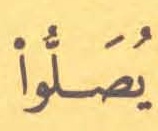 يُصَلُّواْ